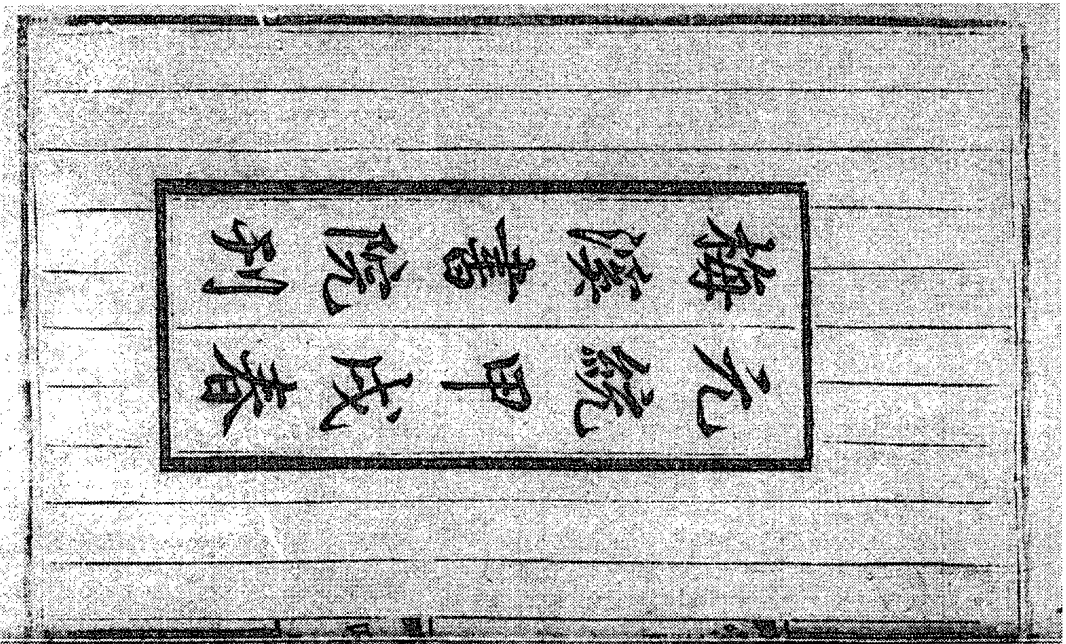 元統甲戌春
梅溪書院刊